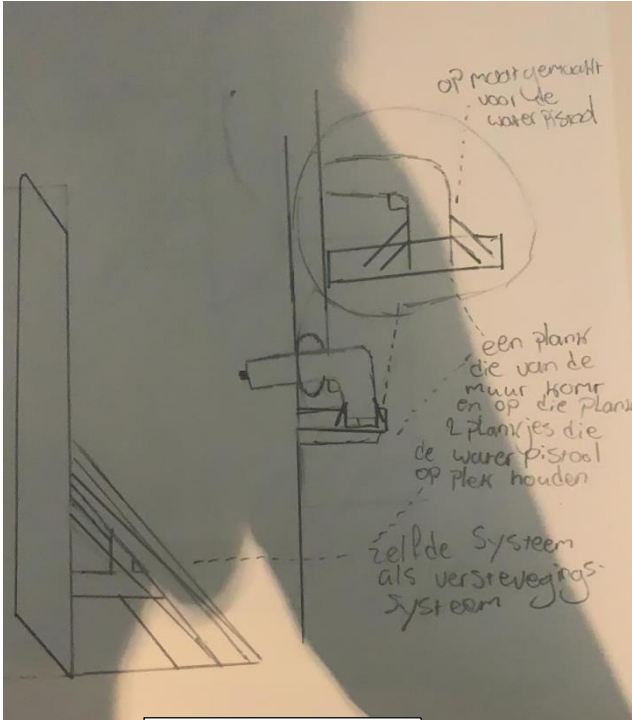 op maat gemaakt
voor de
water pistool
een plank
die van de
muur komt
en op die plank
2 plankjes die
de water pistool
op plek houden
zelfde systeem
als verstevegings-
systeem